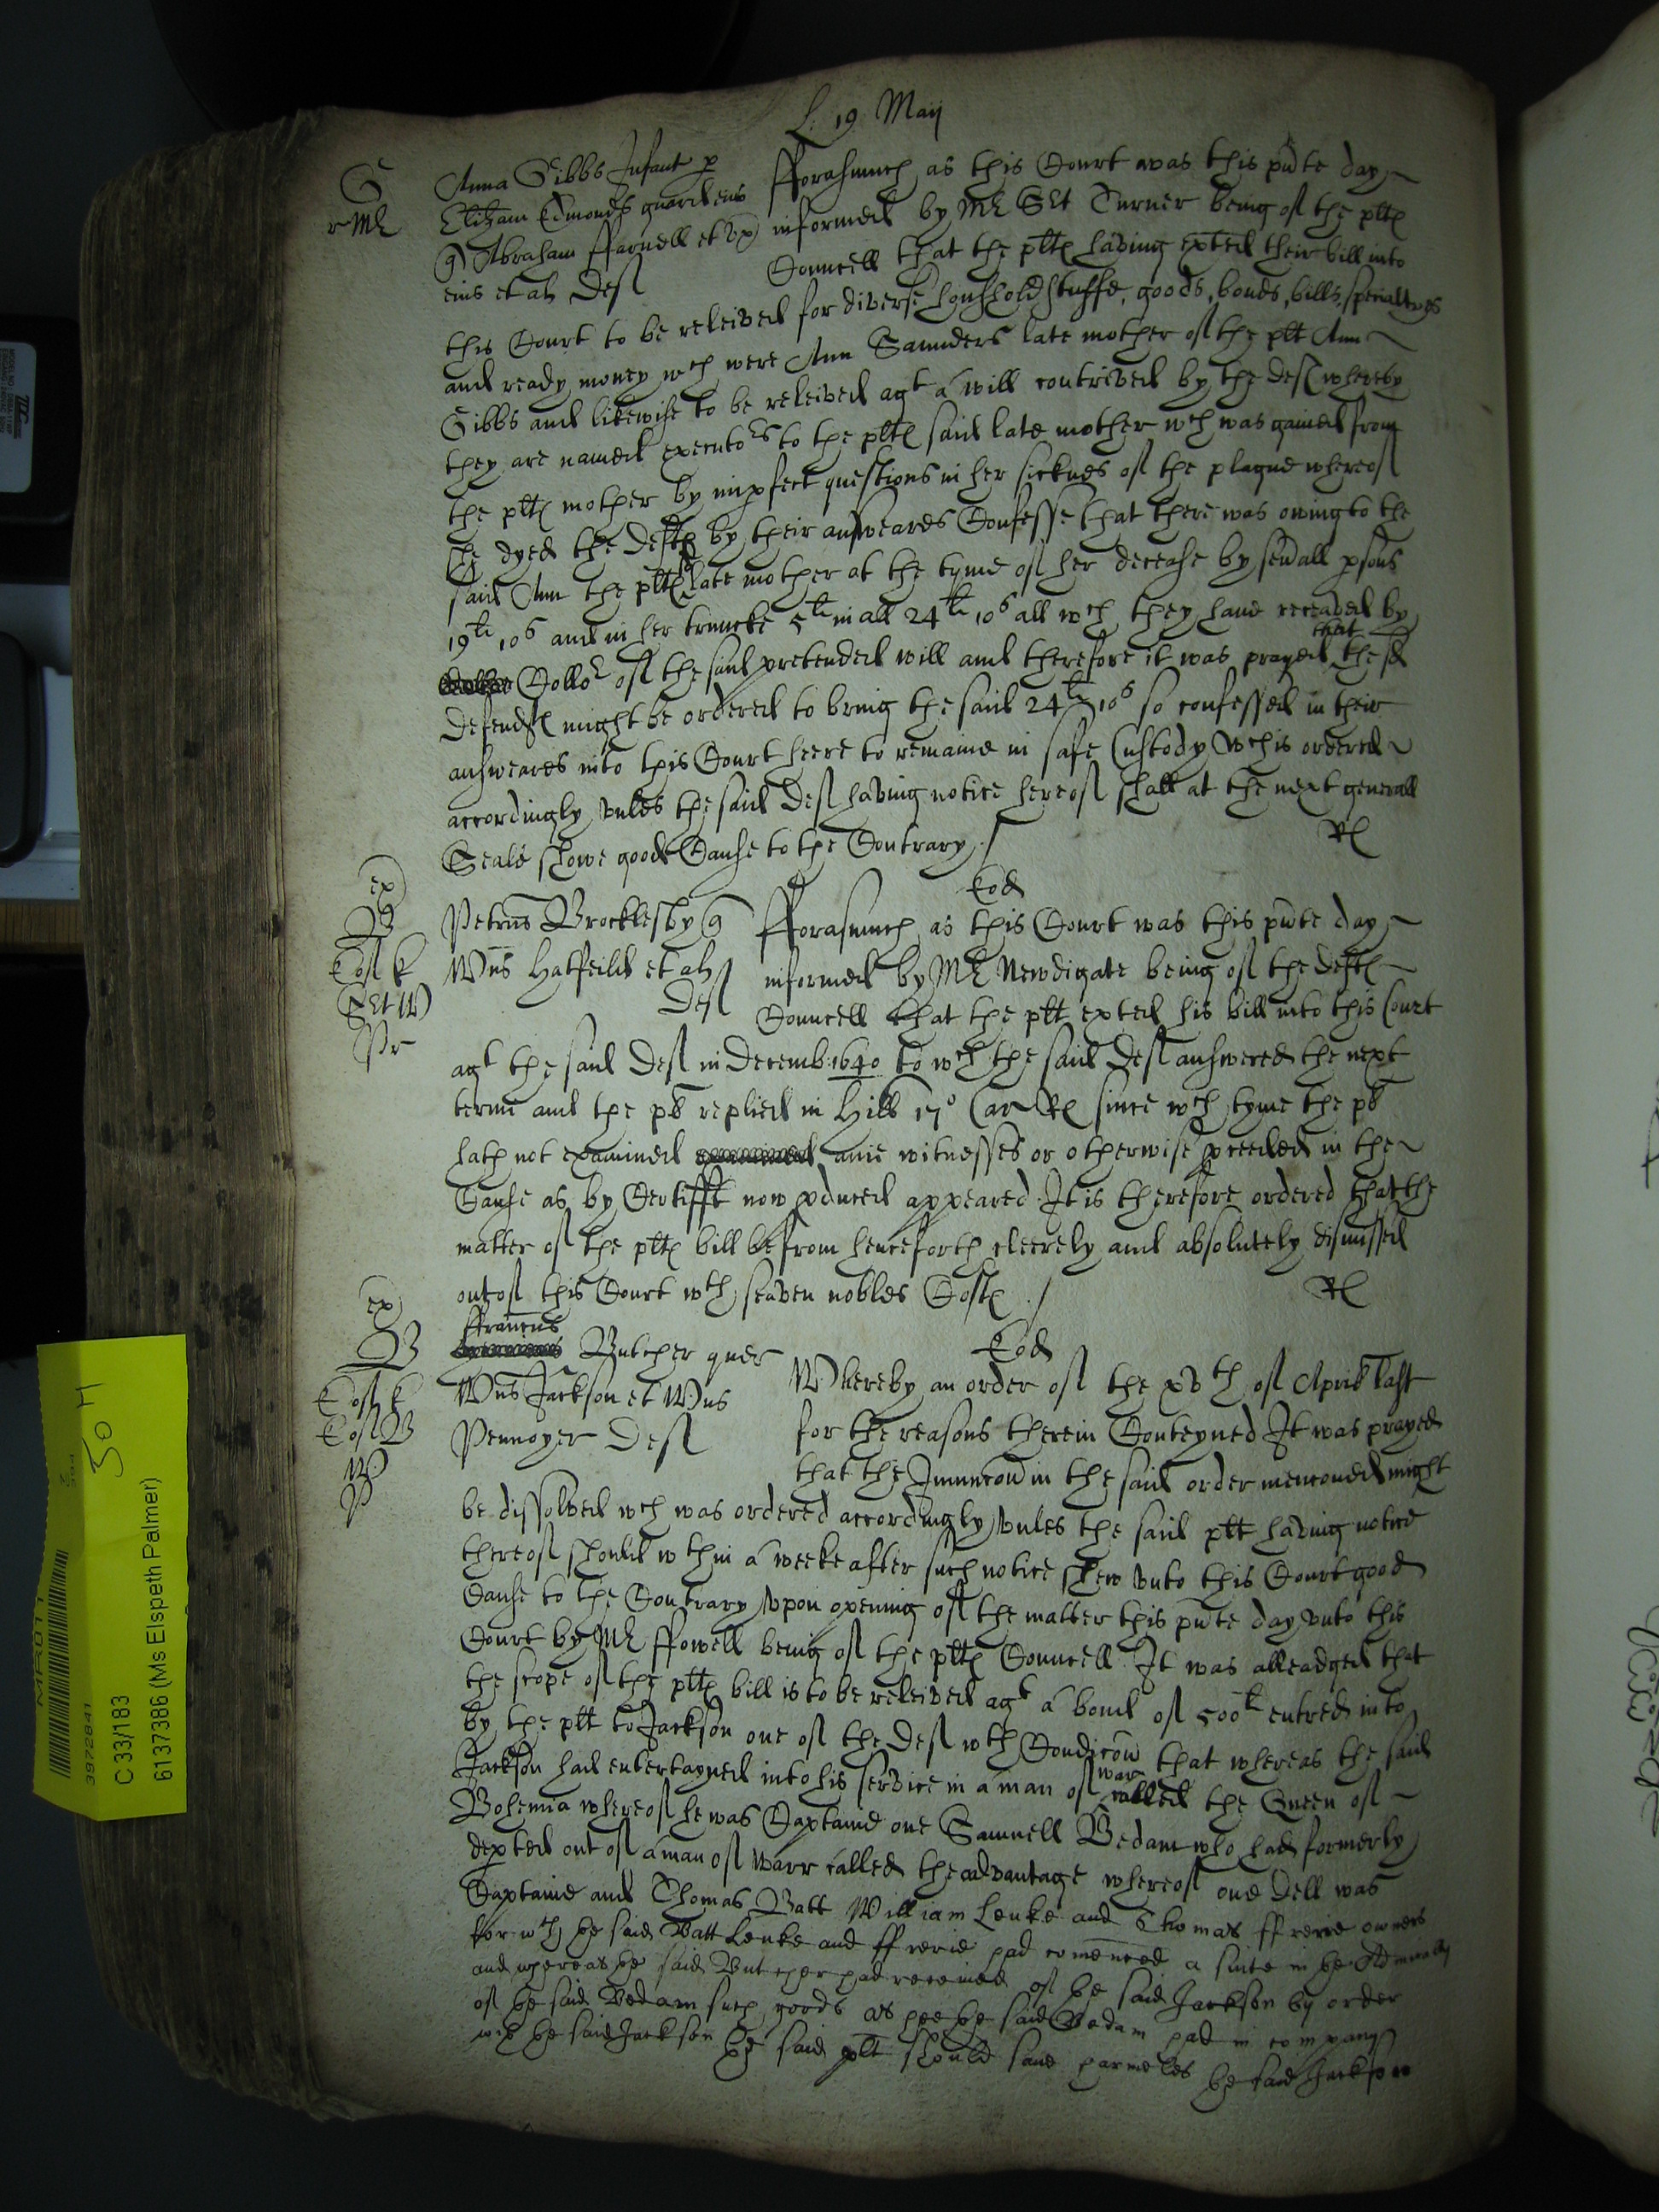 L. 19 Maij
G
r Mr
Anna Gibbs Infant p
Elizam Edmonds guardens
Abraham ffarnell et ux
eius et al Def
fforasmuch as this Court was this pnte day
informed by Mr Sit Turner being of the plts
Councell that the plts having exted their bill into
this Court to be releived for diverse houshold stuffe, goods, bonds, bills, specialtyes
and ready money wch were Ann Saunders late mother of the plt Ann
Gibbs and likewise to be releived agt a will contrived by the def whereby
they are named executors to the plts said late mother wch was gained from
the plts mother by imperfect questions in her sicknes of the plague whereof
she dyed the Defts by their answeares Confesse that there was owing to the
said Ann the plts late mother at the tyme of her decease by sevall psons
19li 10s and in her truncke 5li in all 24li 10s all wch they have receaved by
Collor of the said pretended will and therefore it was prayed that the sd
Defendts might be ordered to bring the said 24li 10s so confessed in their
answeares into this Court heere to remaine in safe Custody wch is ordered
accordingly unles the said Def having notice hereof shall at the next generall
Seale showe good Cause to the Contrary
Rl
ex
B
Cos k
Sit W
Pr
Eod
Petrus Brocklesby q
Wms Hatfeild et als
Def
fforasmuch as this Court was this pnte day
informed by Mr Newdigate being of the defts
Councell that the plt exted his bill into this Court
agt the said Def in Decemb: 1640 to wch the said Def answered the next
terme and the pl replied in Hill 17o Car Rs since wch tyme the pl
hath not examined anie witnesses or otherwise pceeded in the
Cause as by Certifft now pduced appeared. It is therefore ordered that the
matter of the plts bill be from henceforth cleerely and absolutely dismissed
out of this Court wth seaven nobles Costs
Rl
ex
B
Cos k
Cos B
W
P
ffrancus
Butcher quer
Wms Jackson et Wms
Pennoyer Def
Eod
Whereby an order of the xvth of Aprill last
for the reasons therein Conteyned It was prayed
that the Iniuncon in the said order menconed might
be dissolved wch was ordered accordingly unles the said plt having notice
thereof should wthin a weeke after such notice shew unto this Court good
Cause to the Contrary Upon opening of the matter this pnte day unto this
Court by Mr ffowell being of the plts Councell It was alleadged that
the scope of the plts bill is to be releived agt a bond of 500li entred into
by the plt to Jackson one of the Def wth Condicon that whereas the said
Jackson had entertayned into his service in a man of war called the Queen of
Bohemia whereof he was Captaine one Samuell Bedam who had formerly
depted out of a man of warr called the advantage whereof one Dell was
Captaine and Thomas Batt William Leuke and Thomas ffrerie owners
for wch the said Batt Leuke and ffrerie had comenced a suite in the Admiralty
and whereas the said Butcher had received of the said Jackson by order
of the said Bedam such goods as hee the said Bedam had in company
wth the said Jackson the said plt should save harmeles the said Jackson
MR011
3972841
C 33/183
6137386 (Ms Elspeth Palmer)
30 H